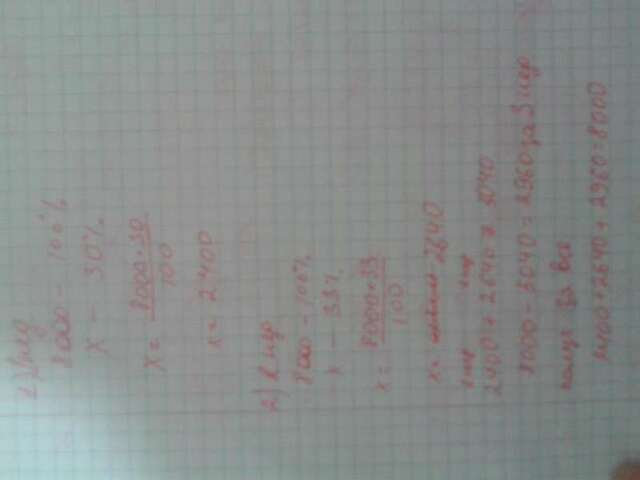 1)
8000 - 100%
x - 30%
x = 8000 · 30
100
x = 2400
2)
8000 - 100%
x - 33%
x = 8000 · 33
100
x = 2640
2400 + 2640 = 5040
8000 - 5040 = 2960 за 3
за все
2400 + 2640 + 2960 = 8000